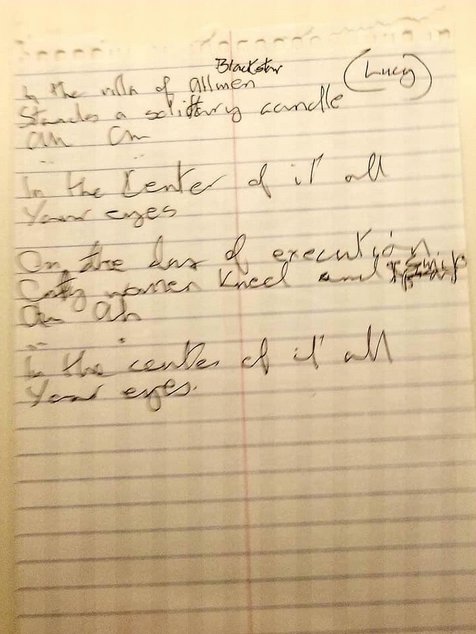 Blackstar
(Lucy)
In the villa of allmen
Stands a solitary candle
ah ah
In the center of it all
Your eyes
On the day of execution
Only women kneel and
ah ah
In the center of it all
Your eyes.